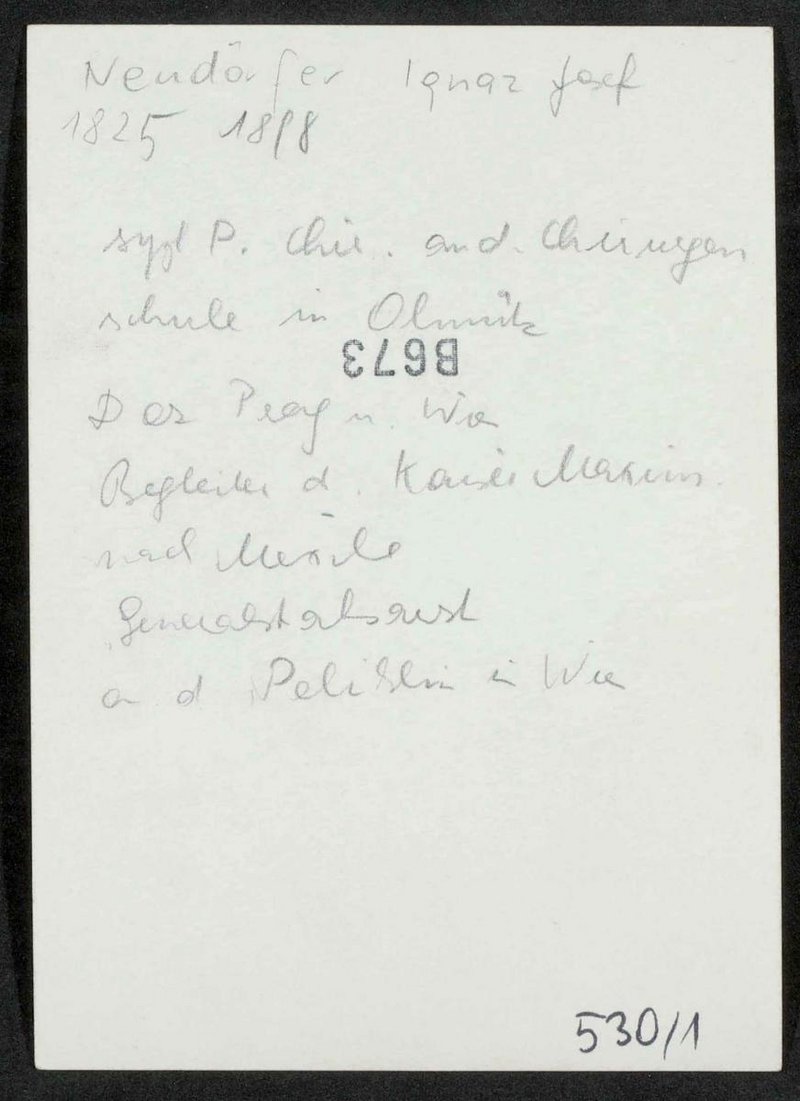 Neudörfer Ignaz Josef
1825 1898
P. Chir. an d. Chirurgen
schule in Olmütz
B673
Doz Prag u. Wien
Begleiter d. Kaisers Maxim.
nach Mexiko
Generalstabsarzt
an d Poliklin in Wien
530/1